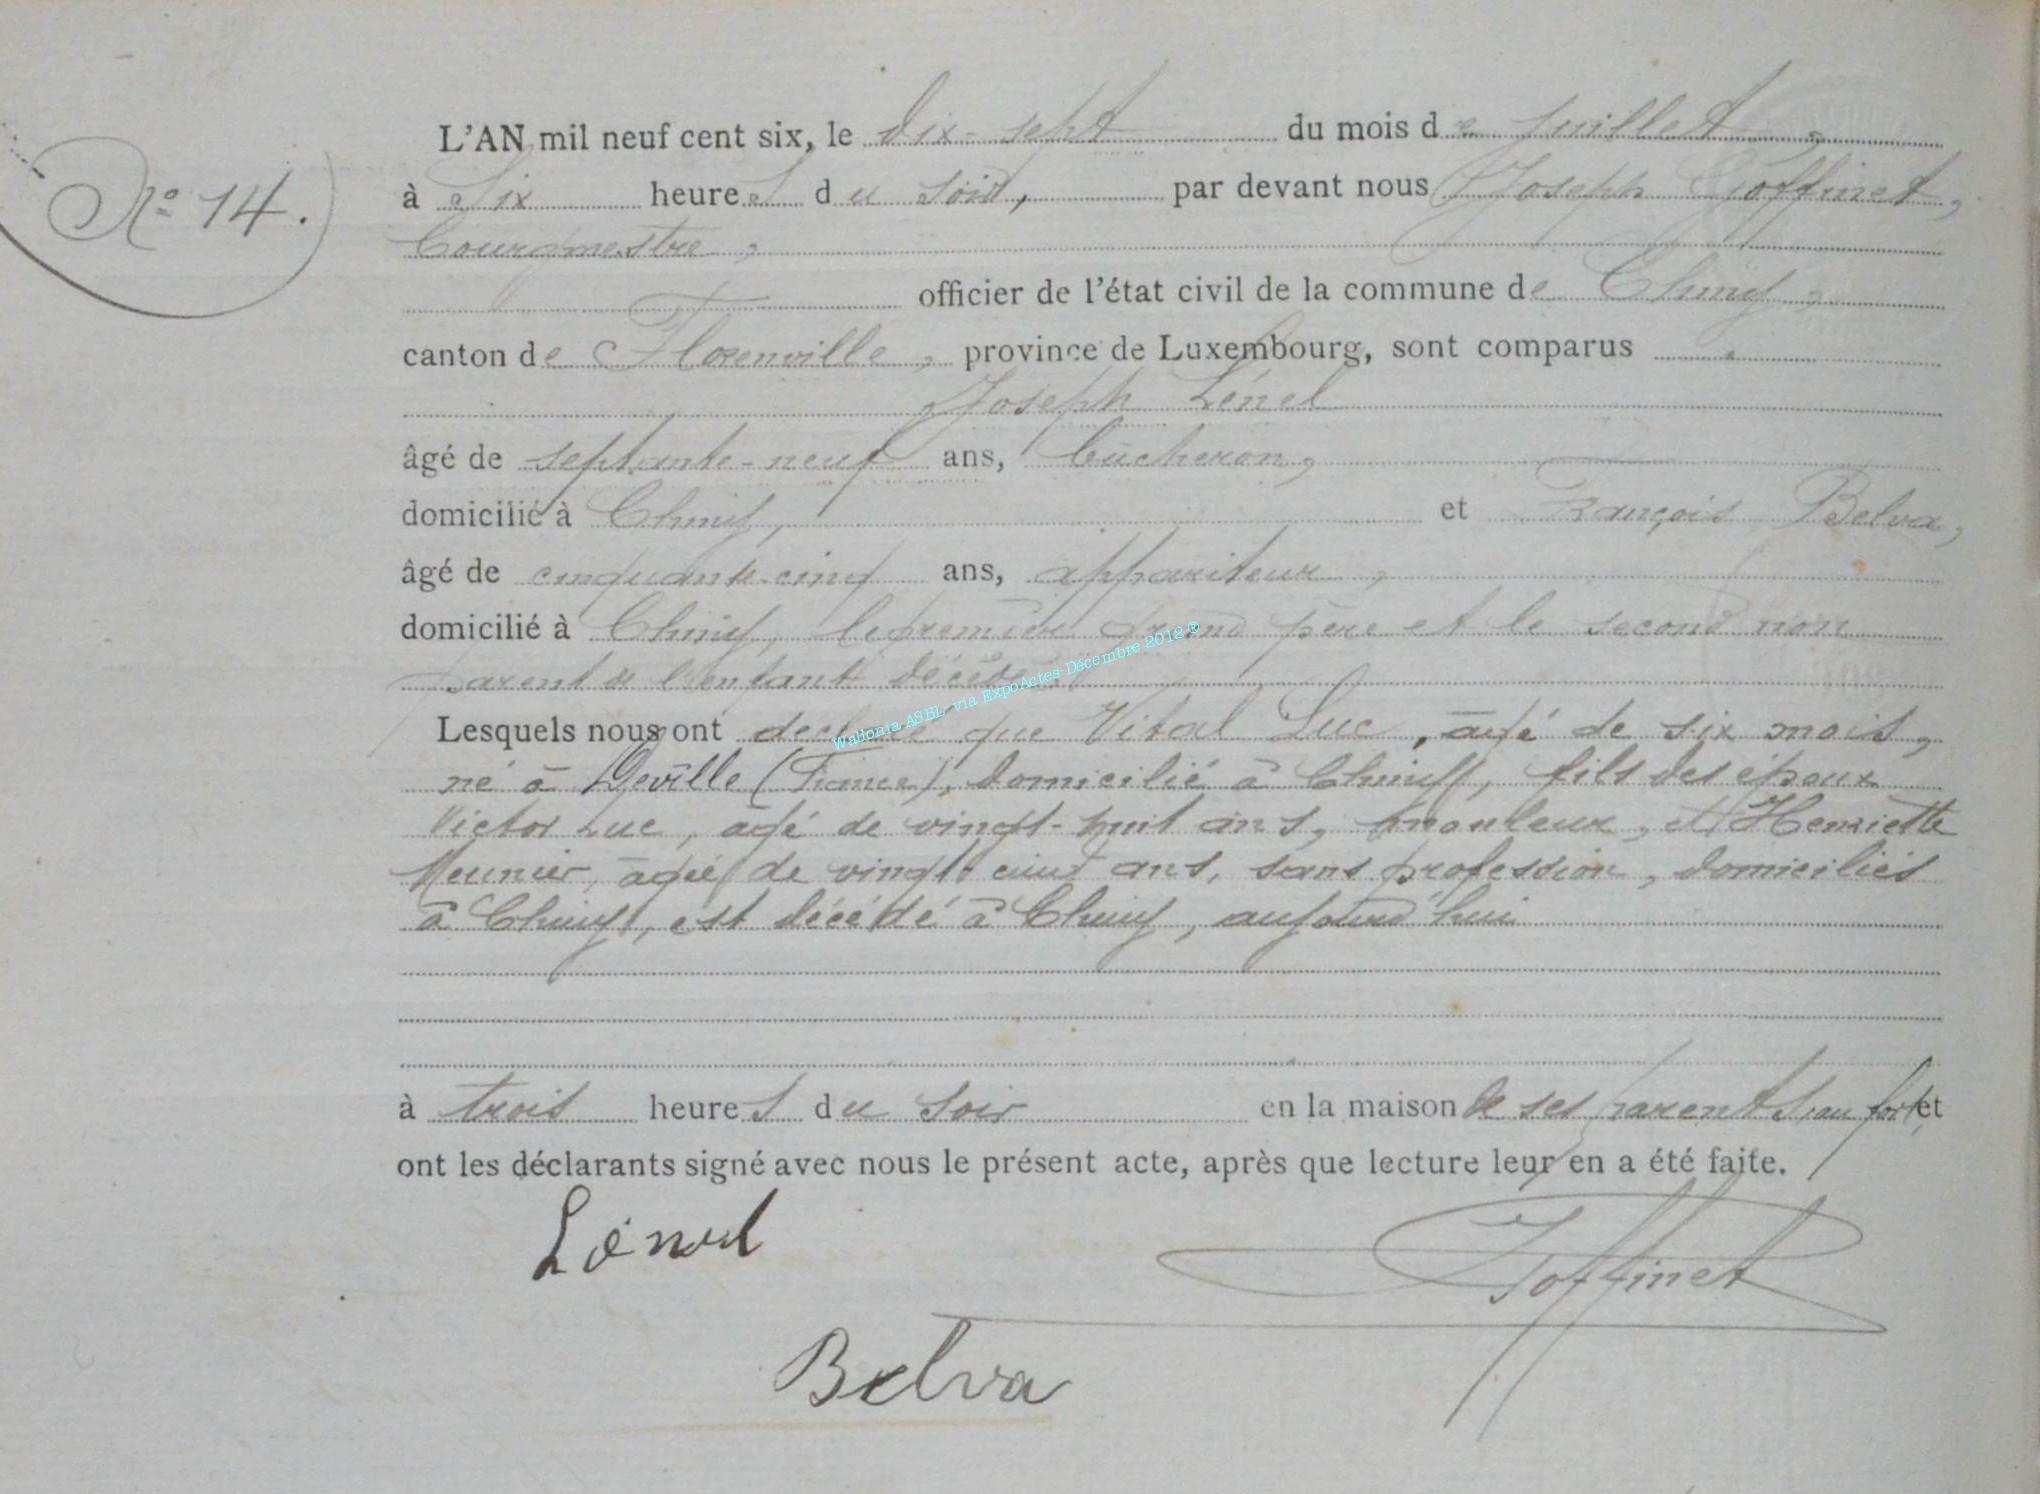 L'AN mil neuf cent six, le dix-sept du mois de Juillet,
N° 14.
à Six heures du soir, par devant nous Joseph Goffinet,
bourgmestre,
officier de l'état civil de la commune de Chiny,
canton de Florenville, province de Luxembourg, sont comparus
Joseph Lénel
âgé de septante-neuf ans, bûcheron,
domicilié à Chiny, et François Belva,
âgé de cinquante-cinq ans, appariteur,
domicilié à Chiny, le premier grand père et le second non
parent de l'enfant décédé
Wallonia ASBL, via ExpoActes-Décembre 2012 ®
Lesquels nous ont declaré que Vital Luc, agé de six mois,
né à Deville (France), domicilié à Chiny, fils des époux
Victor Luc, agé de vingt-huit ans, mouleur, et Henriette
Meunier, agée de vingt ans, sans profession, domiciliés
à Chiny, est décédé à Chiny, aujourd'hui
à trois heures du soir en la maison de ses parents, au fort, et
ont les déclarants signé avec nous le présent acte, après que lecture leur en a été faite.
Lénel
Goffinet
Belva